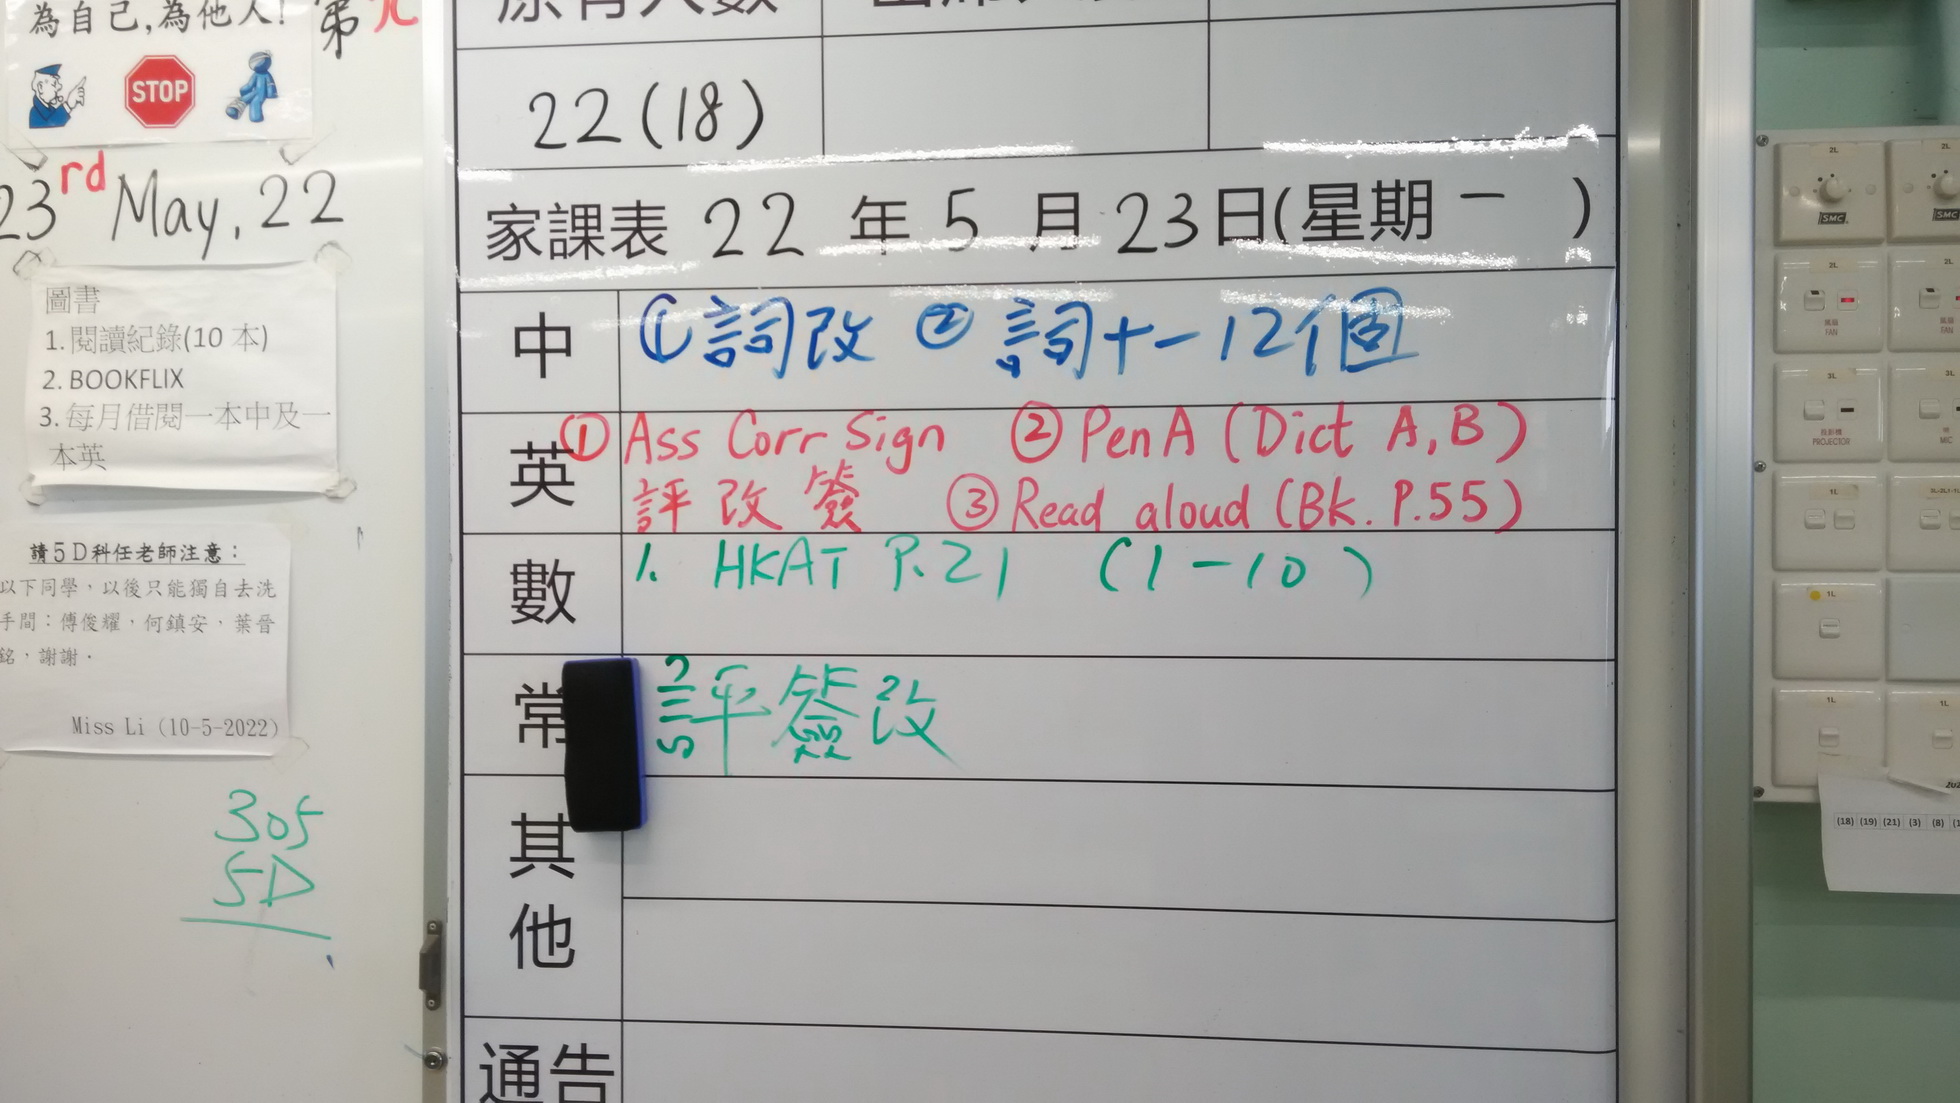 為自己,為他人!
第九
STOP
23rd May, 22
圖書
1. 閱讀紀錄(10 本)
2. BOOKFLIX
3. 每月借閱一本中及一
本英
請5D科任老師注意：
以下同學，以後只能獨自去洗
手間：傅俊耀，何鎮安，葉晉
銘，謝謝．
Miss Li (10-5-2022)
305
5D
原有人數
22(18)
家課表 22 年 5 月 23日(星期一 )
中 ① 詞改 ② 詞十一 12個
英 ① Ass Corr Sign ② Pen A (Dict A, B)
評改簽 ③ Read aloud (Bk. P.55)
數 1. HKAT P.21 (1-10)
常 評簽改
其
他
通告
2L
2L
SMC
SMC
2L
2L
風扇
FAN
風扇
FAN
3L
3L
投影機
PROJECTOR
MIC
1L
1L
1L
1L
(18) (19) (21) (3) (8)